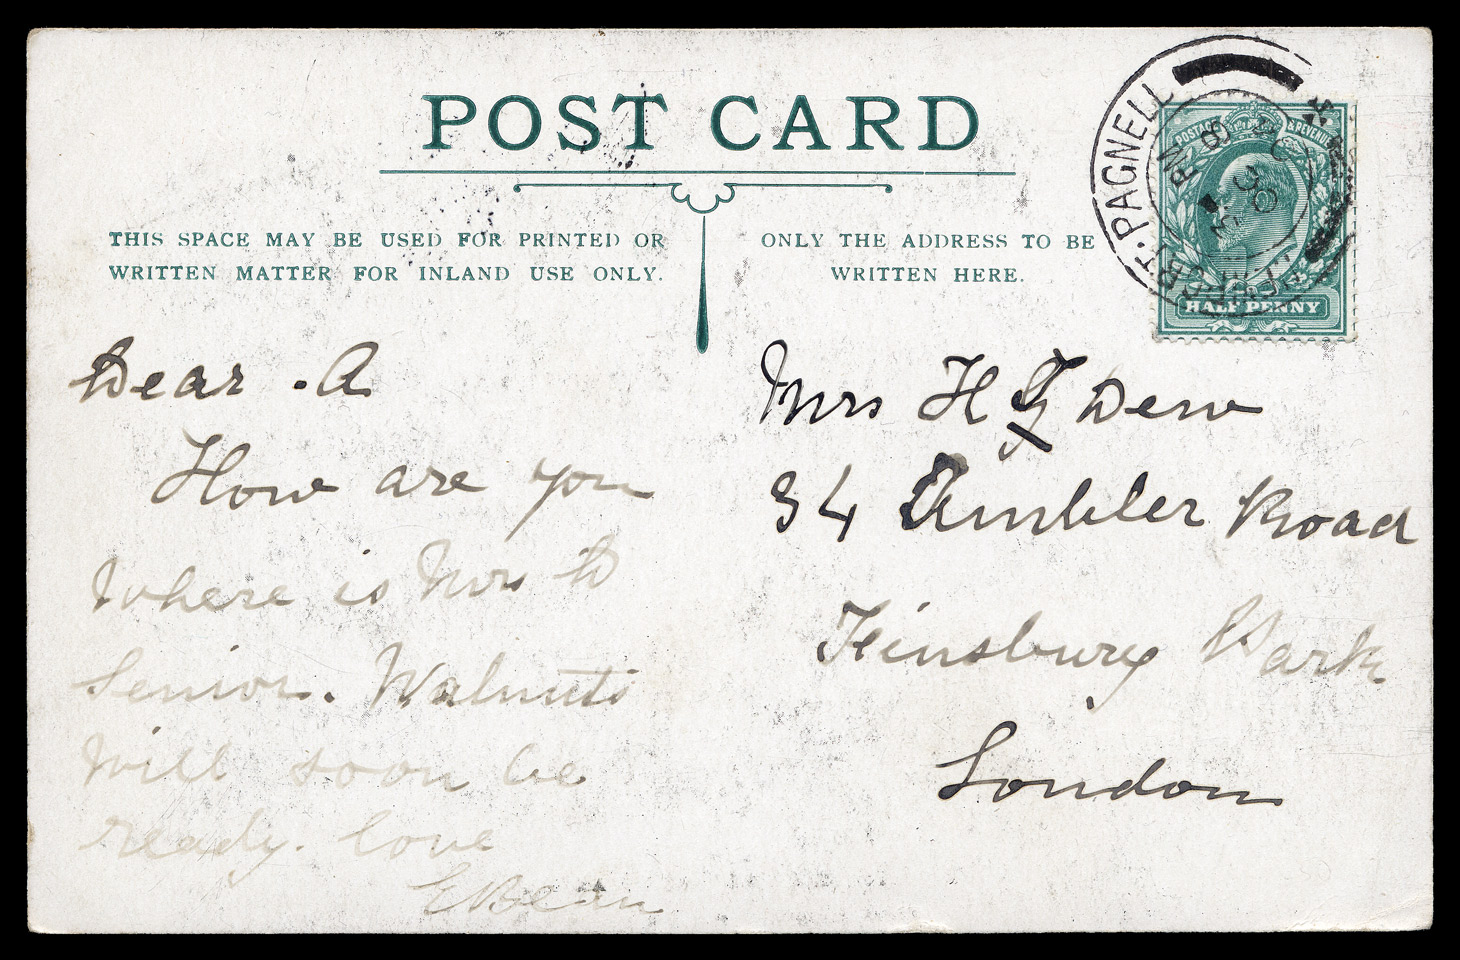 POST CARD
THIS SPACE MAY BE USED FOR PRINTED OR
WRITTEN MATTER FOR INLAND USE ONLY.
ONLY THE ADDRESS TO BE
WRITTEN HERE.
PAGNELL
POSTAGE & REVENUE
HALF PENNY
Dear A
How are you
Where is Mrs D
Senior. Walnuts
will soon be
ready. love
EBean
Mrs H Dew
34 Ambler Road
Finsbury Park
London